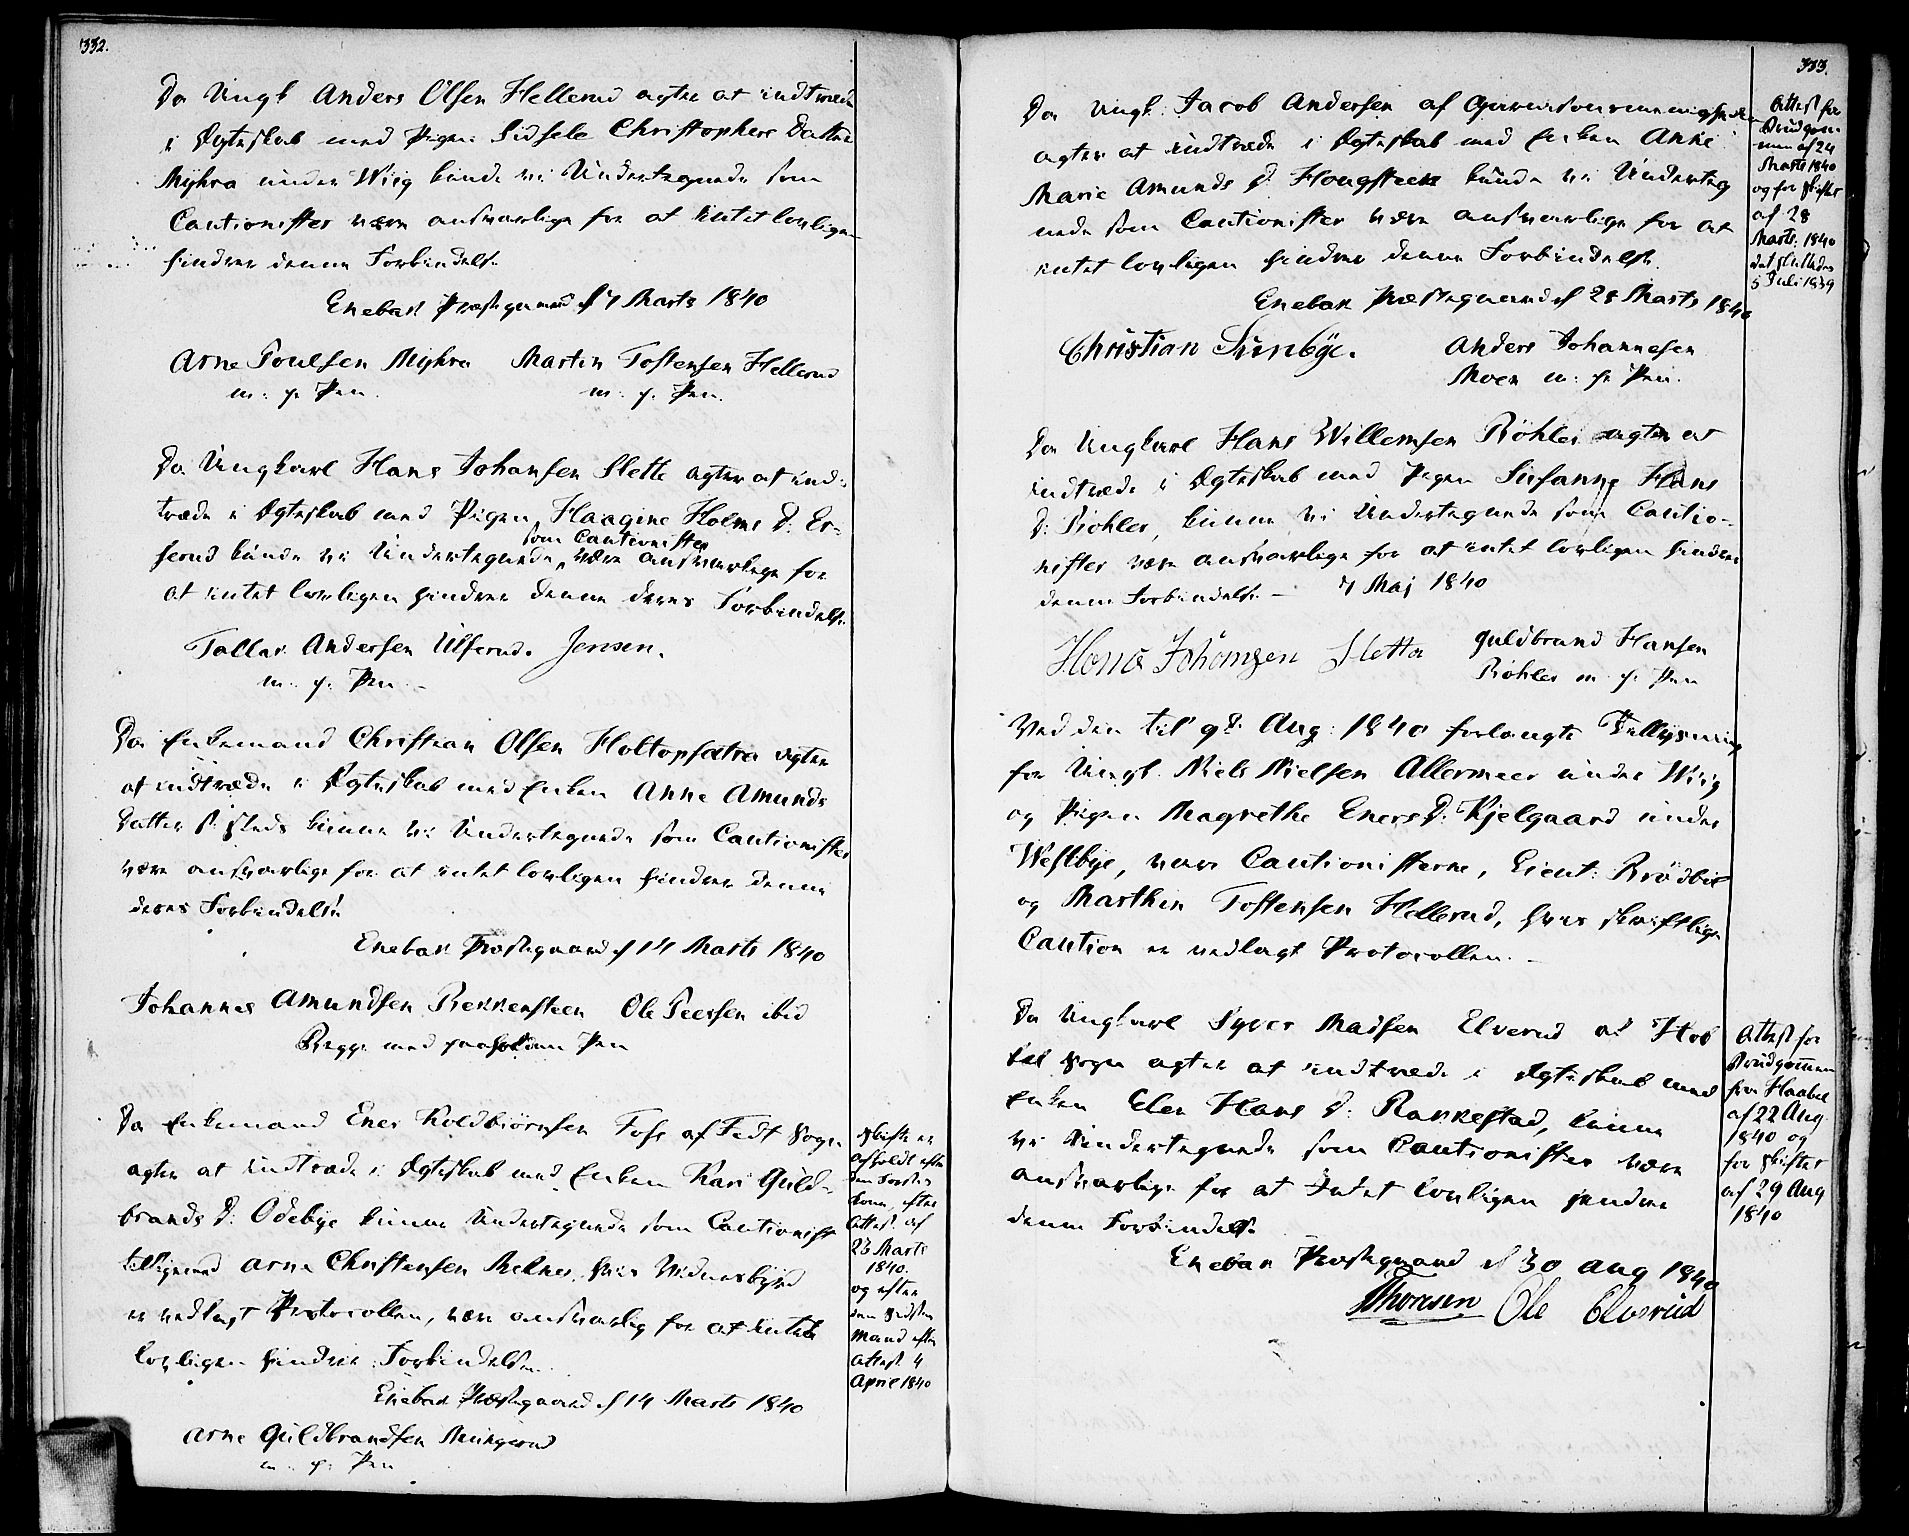 332.
Da Ungk Anders Olsen Hellerud agter at indtræde
i Ægteskab med Pigen Sidsele Christophers Datter
Myhra under Wiig kunde vi Undertegnede som
Cautionister være ansvarlige for at intet lovligen
hindrer denne Forbindelse.
Enebak Præstegaard d 7 Marts 1840
Arne Poulsen Myhra Martin Tostensen Hellerud
m: f. Pen. m: f. Pen.
Da Ungkarl Hans Johansen Slette agter at ind-
træde i Ægteskab med Pigen Haagine Holms D:
kunde vi Undertegnede som Cautionister være ansvarlige for
at intet lovligen hindrer denne deres Forbindelse
Tollev Andersen Ulserud. Jensen.
m. f. Pen.
Da Enkemand Christian Olsen Holtopsætra agter
at indtræde i Ægteskab med Enken Anne Amunds
Datter s. Steds kunne vi Undertegnede som Cautionister
være ansvarlige for at intet lovligen hindrer denne
deres Forbindelse
Enebak Præstegaard d 14 Marts 1840
Johannes Amundsen Rekkensteen Ole Peersen ibid
Begge med paaholden Pen
Da Enkemand Ener Koldbiörnsen Foss af Fedt Sogn
agter at indtræde i Ægteskab med Enken Kari Guld-
brands D: Odebye kunne Undertegnede som Cautionist
tilligemed Arne Christensen hvis Vidnesbyrd
er vedlagt Protocollen, være ansvarlig for at intet
lovligen hindrer Forbindelsen
Enebak Præstegaard d 14 Marts 1840
Arne Guldbrandsen
m. f. Pen
Skifte er
afholdt efter
den
Kone, efter
Attest af
23 Marts
1840.
og efter
den Sidstes
Mand efter
Attest 4
April 1840
333.
Da Ungk. Jacob Andersen af
agter at indtræde i Ægteskab med Enken Anne
Marie Amunds D. Hougsteen kunde vi Underteg
nede som Cautionister være ansvarlige for at
intet lovligen hindrer denne Forbindelse
Enebak Præstegaard d 28 Marts 1840
Christian Sunbye. Anders Johannesen
Moen m: f. Pen.
Attest for
Brudgom-
men af 24
Marts 1840
og for Skiftet
af 28
Marts. 1840
det sluttedes
5 Juli 1839
Da Ungkarl Hans Willemsen Röhler agter at
indtræde i Ægteskab med Pigen Susanne Hans
D: Röhler, kunne vi Undertegnede som Cautio-
nister være ansvarlige for at intet lovligen hindrer
denne Forbindelse - 7 Maj 1840
Hans Johansen Sletta Guldbrand Hansen
Röhler m. f. Pen
Ved den til 9d. Aug: 1840 forlangte Tillysning
for Ungk. Niels Nielsen Allermeer under Wiig
og Pigen Magrethe Eners D. Kjelgaard under
Westbye, vare Cautionisterne, Lieut: Brödbit
og Marthin Tostensen Hellerud, hvis skriftlige
Caution er vedlagt Protocollen. -
Da Ungkarl Syver Madsen Elverud af Hob
bel Sogn agter at indtræde i Ægteskab med
Enken Elen Hans D: Rakkestad, kunne
vi Undertegnede som Cautionister være
ansvarlige for at Intet lovligen hindrer
denne Forbindelse
Enebak Præstegaard d 30 Aug 1840
Thoresen Ole Elverud
Attest for
Brudgommen
fra Haabel
af 22 Aug
1840 og
for Skiftet
af 29 Aug
1840